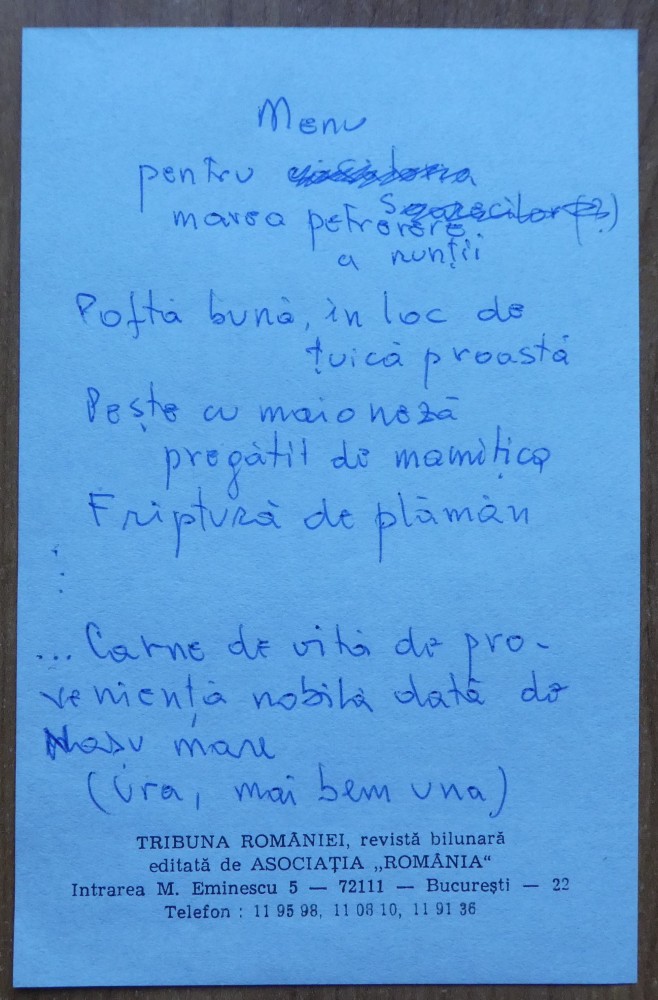 Menu
pentru
marea petrerere
a nunții
Poftă bună, în loc de
țuică proastă
Pește cu maioneză
pregătit de mamițica
Friptură de plămân
... Carne de vită de pro-
veniență nobilă dată de
Nașu mare
(Ura, mai bem una)
TRIBUNA ROMÂNIEI, revistă bilunară
editată de ASOCIAȚIA „ROMÂNIA“
Intrarea M. Eminescu 5 — 72111 — București — 22
Telefon : 11 95 98, 11 08 10, 11 91 36